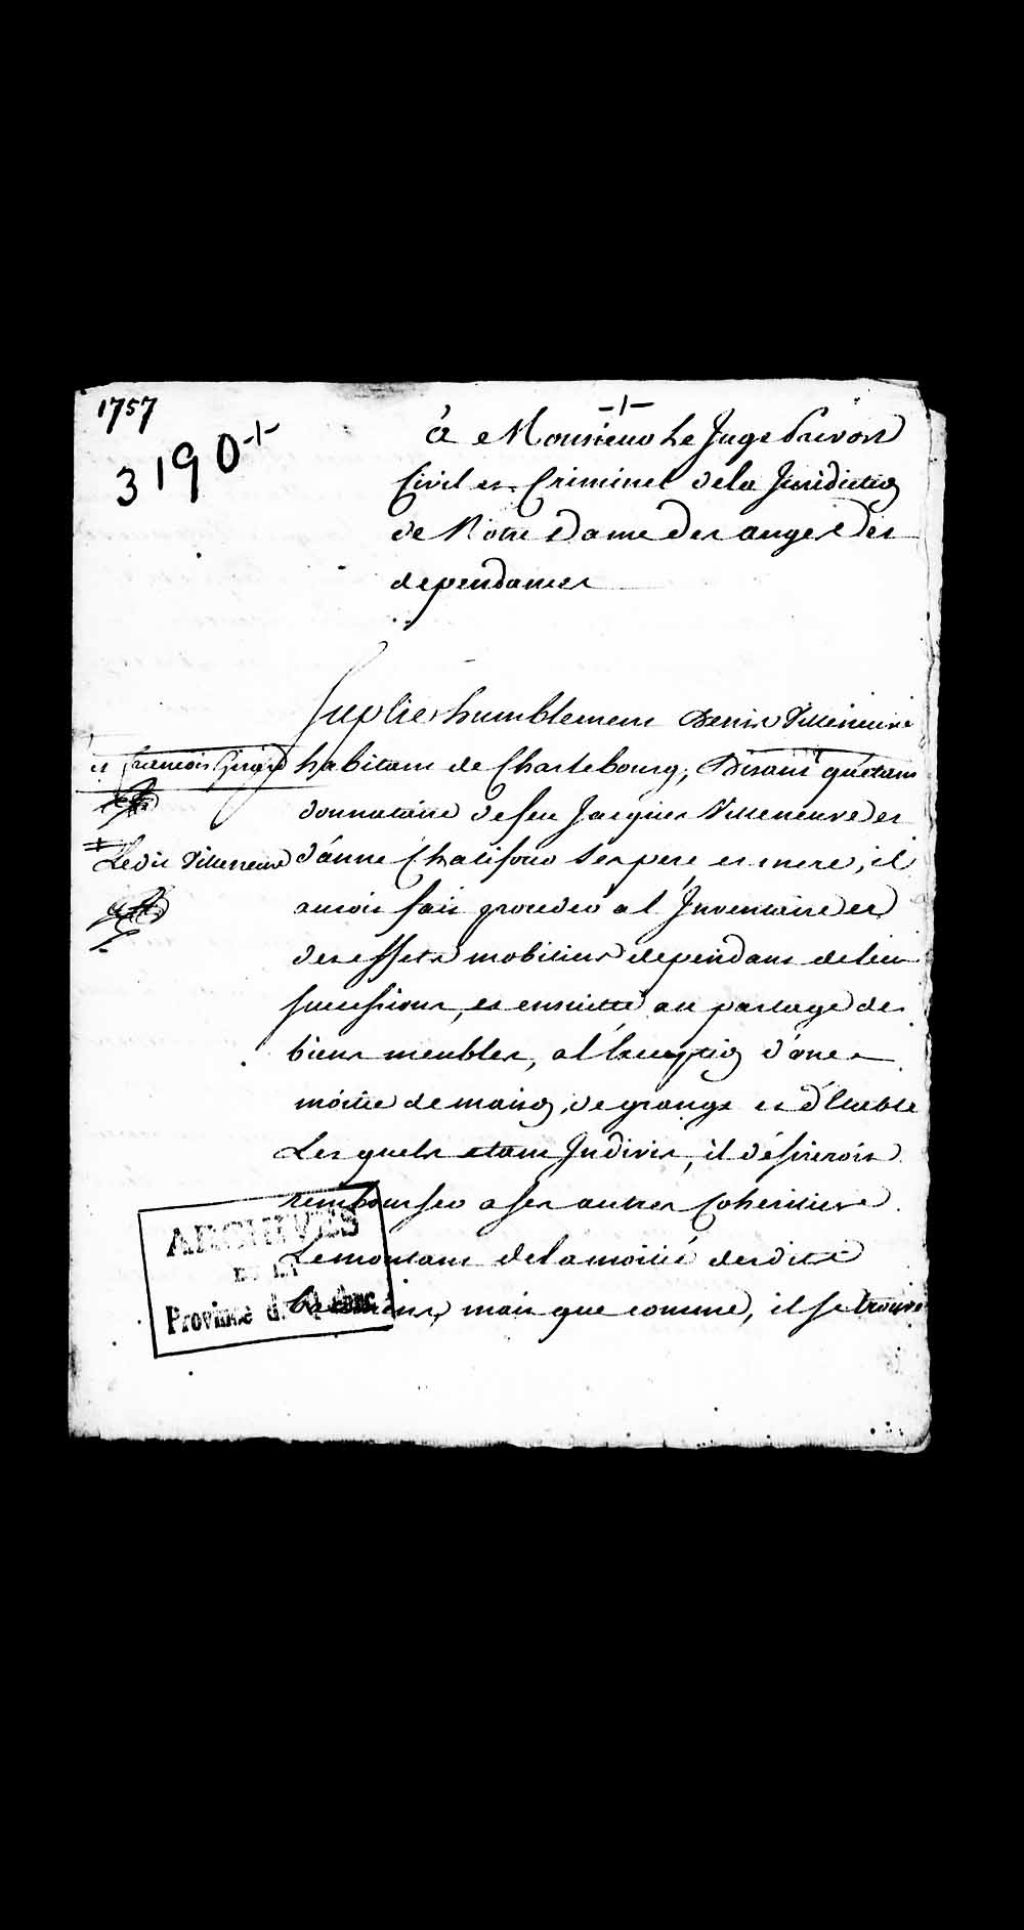 1757
3190
à Monsieur Le Juge Prevost
Civil et Criminel dela Juridiction
de Notre Dame Des anges Des
dependances
Suplie humblement Denis Villeneuve
et francois Girard
habitans de Charlebourg, Disant quetant
donnataire de feu Jacques Villeneuve et
Ledit Villeneuve
d'anne Chalifour Ses pere et mere, il
auroit fait proceder a l'Inventaire et
des effets mobiliers dependans de leur
successions, et ensuitte au partage des
biens meubles, a l'Exception d'une
moitie de maison, de grange et d'Etable
Lesquels etant Indivis, il désireroit
rembourser a ses autres Coheritiers
Le montant dela moitié desdits
batimens, mais que comme, il se trouve
ARCHIVES
DE LA
Province de Québec